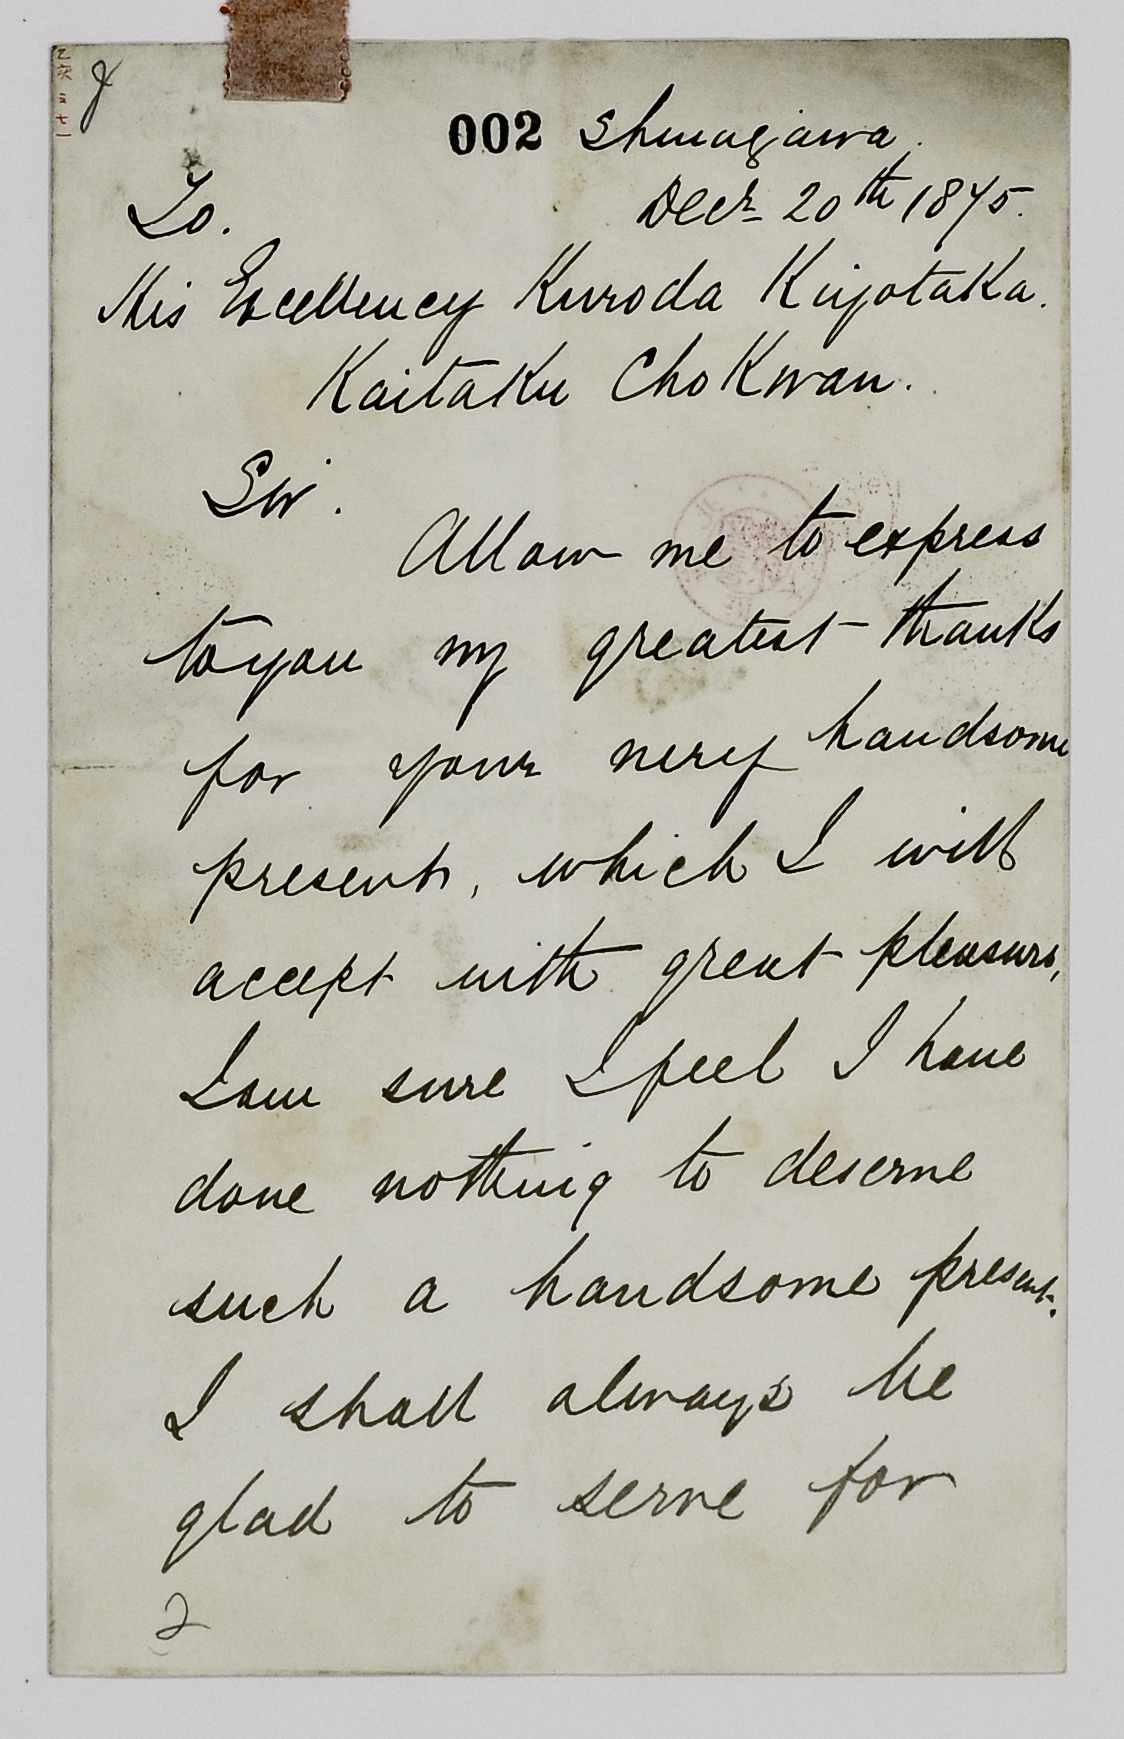 002 Shinagawa.
To. Decr 20th 1875.
His Excellency Kuroda Kiyotaka.
Kaitaku ChoKwan.
Sir.
Allow me to express
to you my greatest thanks
for your very handsome
present, which I will
accept with great pleasure,
I am sure I feel I have
done nothing to deserve
such a handsome present.
I shall always be
glad to serve for
2